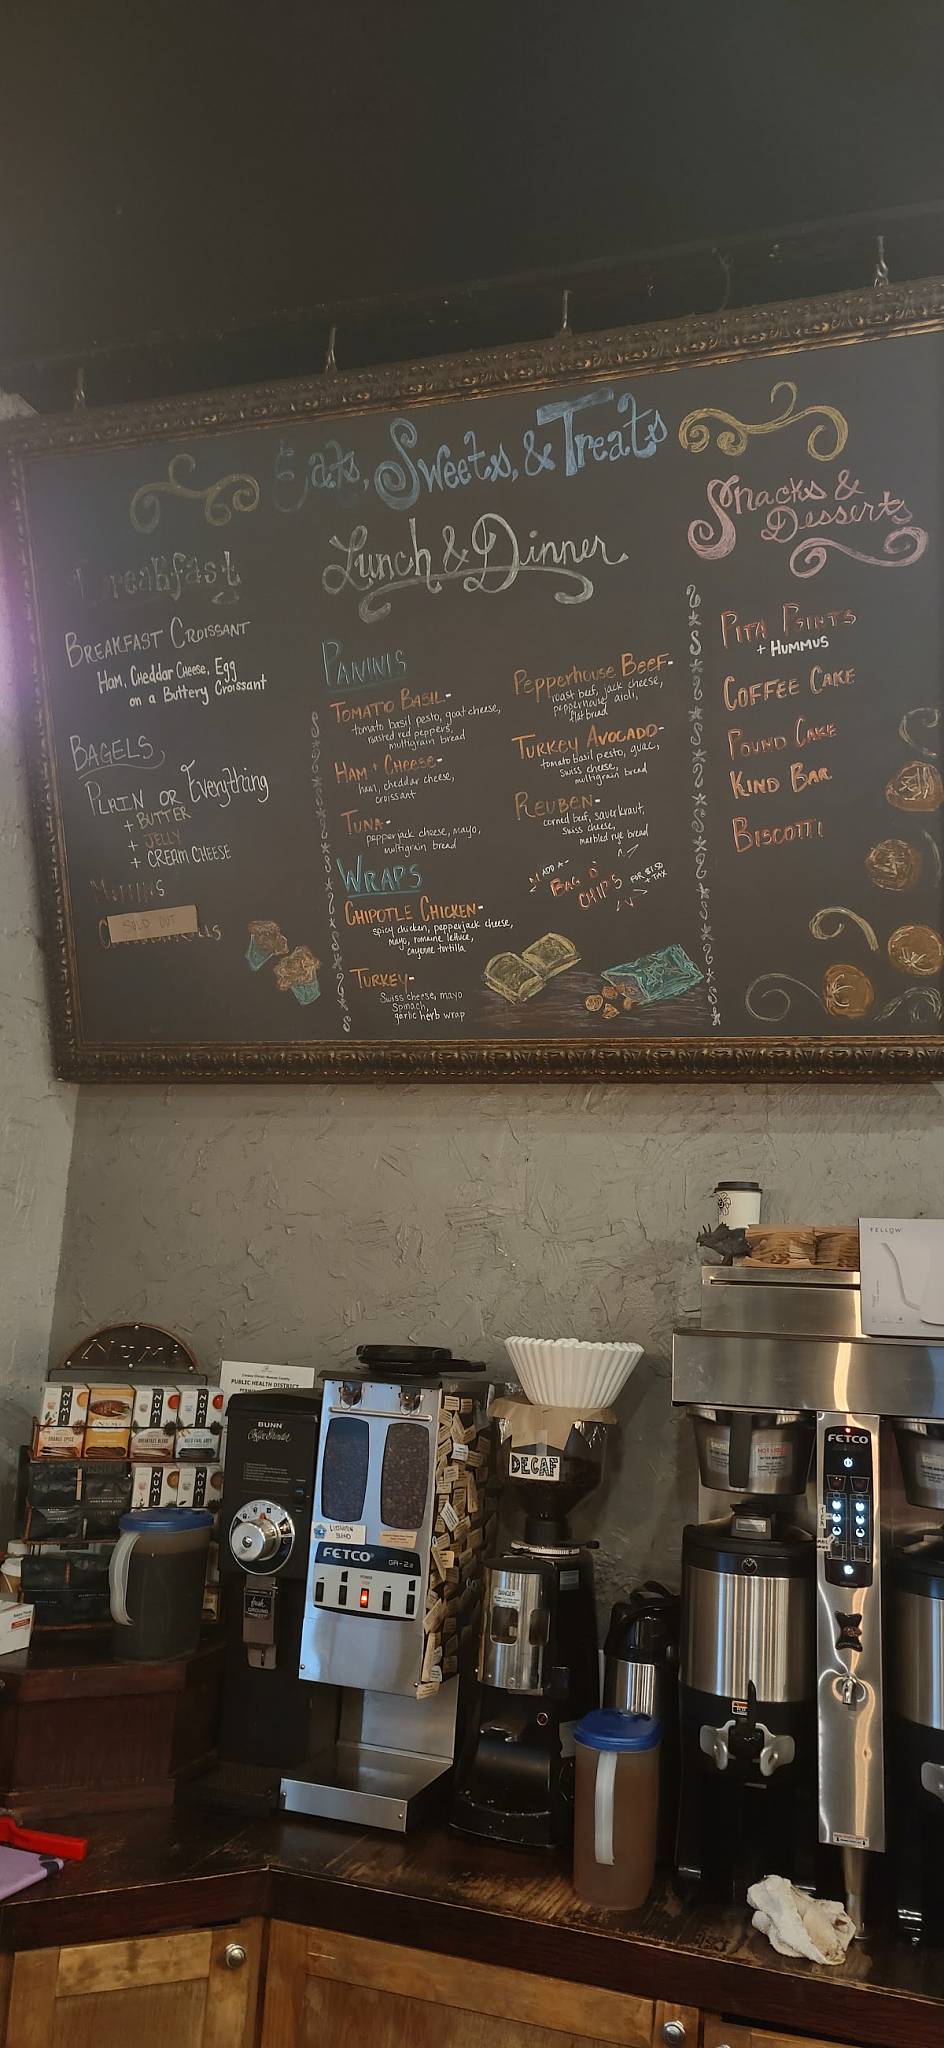 Eats, Sweets, & Treats
Breakfast
BREAKFAST CROISSANT
HAM, CHEDDAR CHEESE, EGG
on a Buttery Croissant
BAGELS
PLAIN OR Everything
+ BUTTER
+ JELLY
+ CREAM CHEESE
MUFFINS
SOLD OUT
Lunch & Dinner
PANINIS
TOMATO BASIL-
tomato basil pesto, goat cheese,
roasted red peppers,
multigrain bread
HAM + CHEESE-
ham, cheddar cheese,
croissant
TUNA-
pepperjack cheese, mayo,
multigrain bread
WRAPS
CHIPOTLE CHICKEN-
spicy chicken, pepperjack cheese,
mayo, romaine lettuce,
cayenne tortilla
TURKEY-
Swiss cheese, mayo
Spinach,
garlic herb wrap
Pepperhouse BEEF-
roast beef, jack cheese,
pepperhouse aioli,
flatbread
TURKEY AVOCADO-
tomato basil pesto, guac,
Swiss cheese,
multigrain bread
REUBEN-
corned beef, sauerkraut,
swiss cheese,
marbled rye bread
ADD A
BAG O'
CHIPS
FOR $1.50
+ TAX
Snacks &
Desserts
PITA POINTS
+ HUMMUS
COFFEE CAKE
POUND CAKE
KIND BAR
BISCOTTI
FELLOW
NUMI
PUBLIC HEALTH DISTRICT
NUMI
NUMI
NUMI
NUMI
ORANGE SPICE
BREAKFAST BLEND
AGED EARL GREY
NUMI
NUMI
BUNN
fresh
GROUND
FETCO
GR-2.2
DECAF
DANGER
FETCO